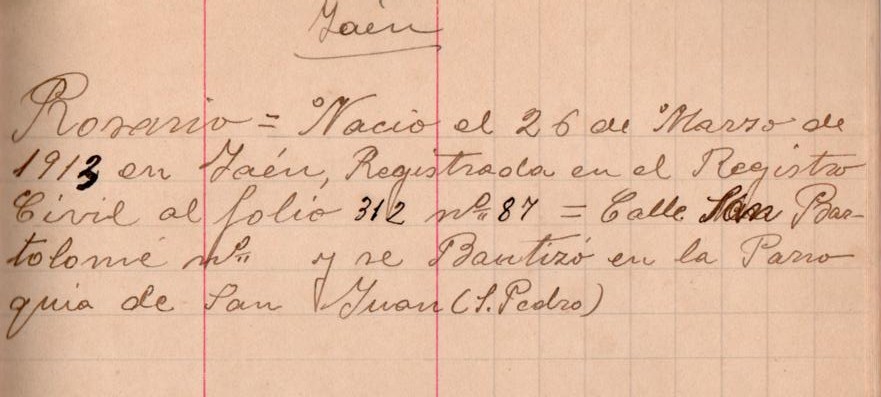 Jaén
Rosario = Nacio el 26 de Marzo de
1913 en Jaén, Registrada en el Registro
Civil al folio 312 nº 87 = Calle San Bar-
tolomé nº y se Bautizó en la Parro
quia de San Juan (S. Pedro)